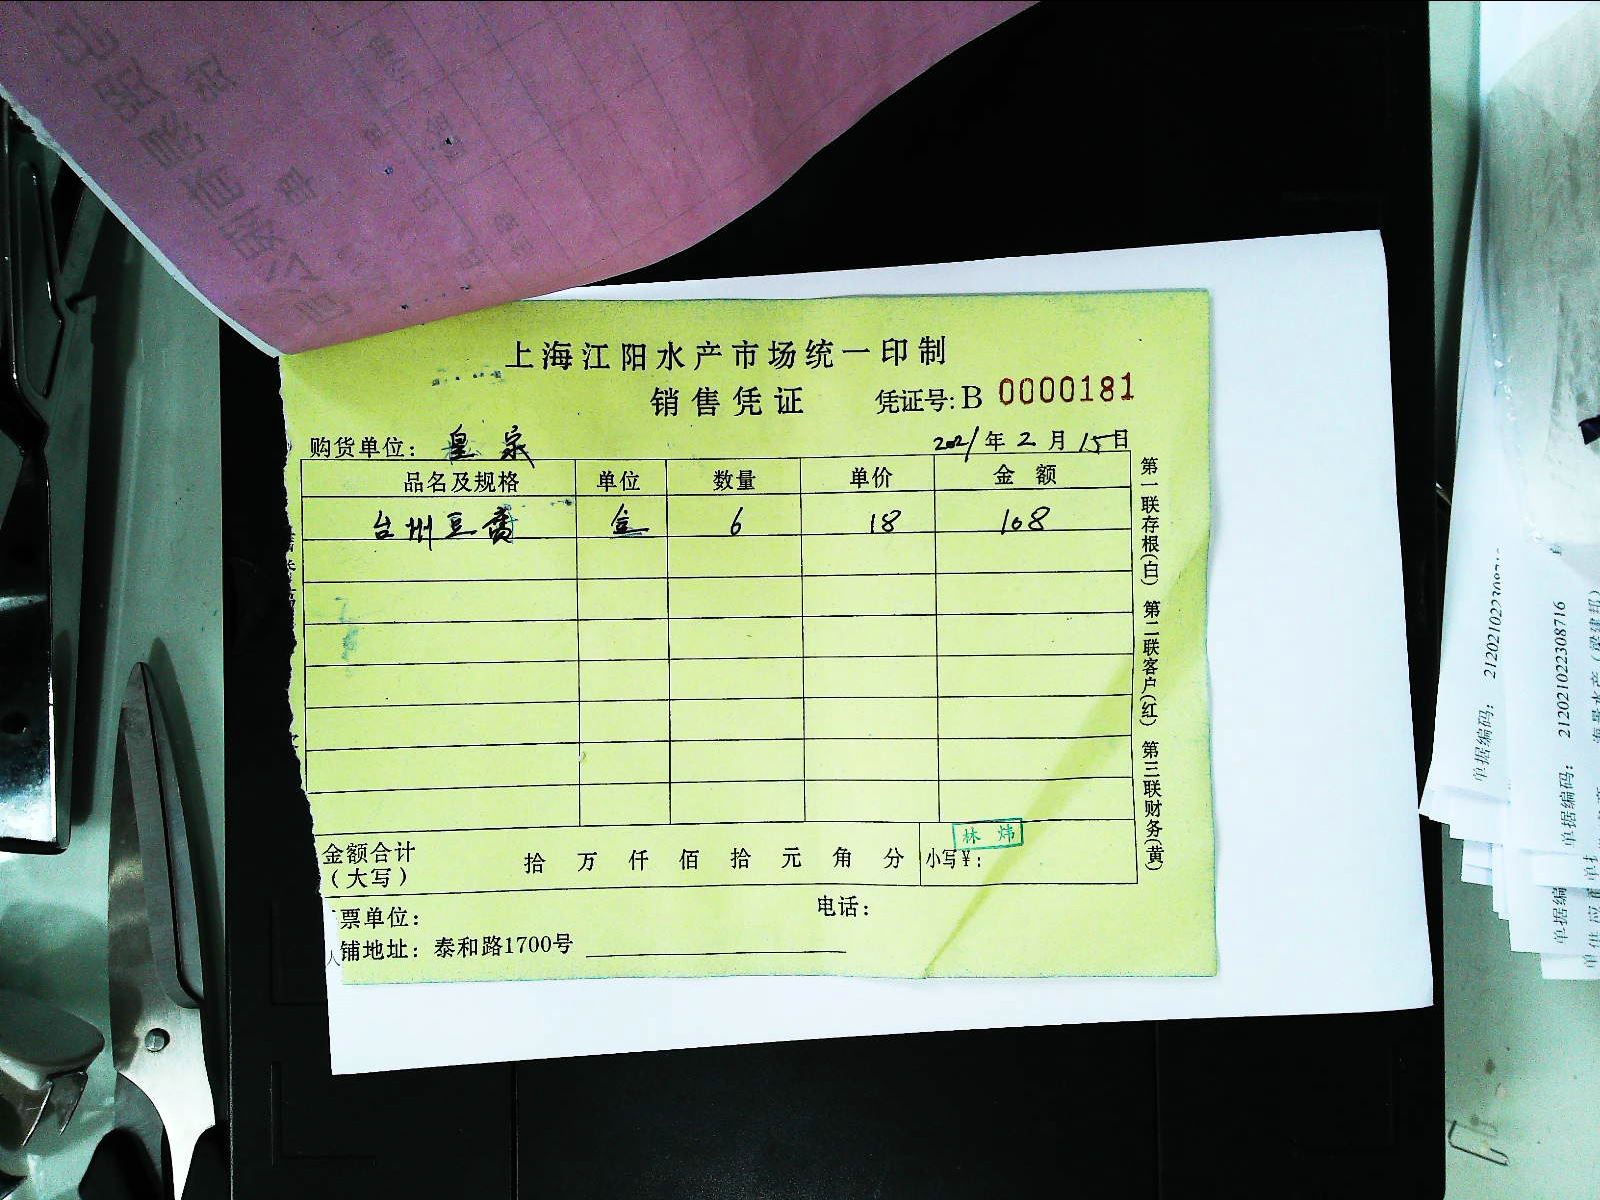 上海江阳水产市场统一印制
销售凭证 凭证号: B 0000181
购货单位： 皇家 2021年2月15日
品名及规格 单位 数量 单价 金额
台州豆腐 盒 6 18 108
第一联存根(白) 第二联客户(红) 第三联财务(黄)
林炜
金额合计（大写） 拾 万 仟 佰 拾 元 角 分 小写¥：
票单位： 电话：
铺地址：泰和路1700号
单据编码：
单据编码： 2120210222308716